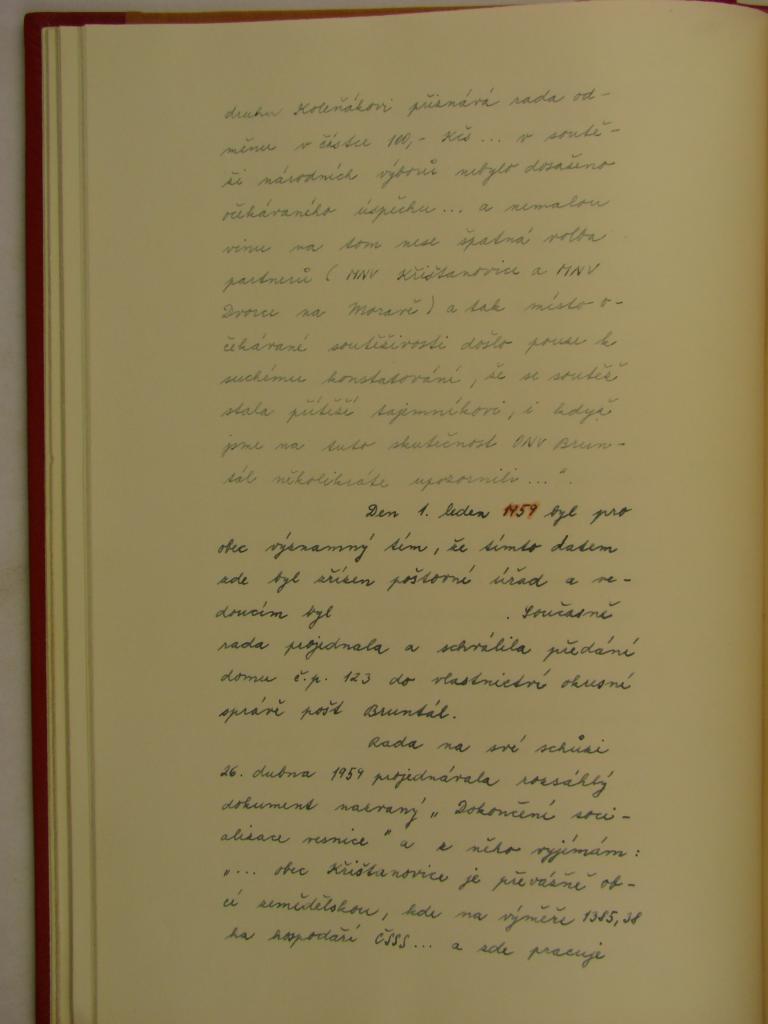 druhu Koleňákovi přiznává rada od-
měnu v částce 100,- Kčs... v soutě-
ži národních výborů nebylo dosaženo
očekávaného úspěchu... a nemalou
vinu na tom nese špatná volba
partnerů (MNV Křišťanovice a MNV
Dvorce na Moravě) a tak místo o-
čekávané soutěživosti došlo pouze k
suchému konstatování, že se soutěž
stala přítěží tajemníkovi, i když
jsme na tuto skutečnost ONV Brun-
tál několikráte upozornili...".
Den 1. leden 1959 byl pro
obec významný tím, že tímto datem
zde byl zřízen poštovní úřad a ve-
doucím byl . Současně
rada projednala a schválila předání
domu č.p. 123 do vlastnictví okresní
správě pošt Bruntál.
Rada na své schůzi
26. dubna 1959 projednávala rozsáhlý
dokument nazvaný „Dokončení soci-
alizace vesnice" a z něho vyjímám:
„... obec Křišťanovice je převážně ob-
cí zemědělskou, kde na výměře 1385,38
ha hospodaří ČSSS... a zde pracuje